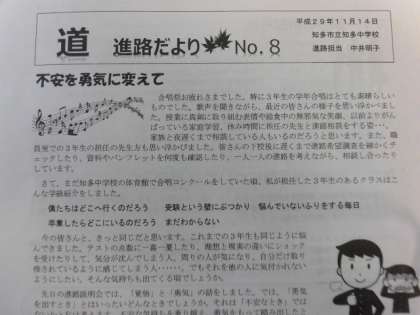 平成29年11月14日
知多市立知多中学校
進路担当　中井明子
道　進路だより　No.8
不安を勇気に変えて
合唱祭お疲れさまでした。特に3年生の学年合唱はとても素晴らしい
ものでした。歌声を聞きながら、最近の皆さんの様子を思い浮かべまし
た。授業に真剣に取り組む表情や給食中の無邪気な笑顔、以前よりがん
ばっている家庭学習、休み時間に担任の先生と進路相談をする姿・・・。
家族と夜遅くまで相談している人もいるのだろうと思います。また、職
員室での3年生の担任の先生方も思い浮かびました。皆さんの下校後に遅くまで進路希望調査を細かくチ
ェックしたり、資料やパンフレットを何度も確認したり、一人一人の進路を考えながら、相談し合ったり
しています。
さて、まだ知多中学校の体育館で合唱コンクールをしていた頃、私が担任した3年生のあるクラスはこ
んな学級紹介をしました。
僕たちはどこへ行くのだろう　受験という壁にぶつかり　悩んでいないふりをする毎日
卒業したらどこにいるのだろう　まだわからない
今の皆さんと、きっと同じだと思います。これまでの3年生も同じように悩
んできました。テストの点数に一喜一憂したり、理想と現実の違いにショック
を受けたりして、気分が沈んでしまう人、周りの人が気になり、自分だけ取り
残されているように感じてしまう人・・・・・・。でもそれを他の人に気付かれない
ようにしたい、そんな気持ちも出てくる頃でしょうか。
先日の進路説明会では、「覚悟」と「勇気」の話をしました。では、「勇気
を出すとき」とはいったいどんなときでしょうか。それは「不安なとき」では